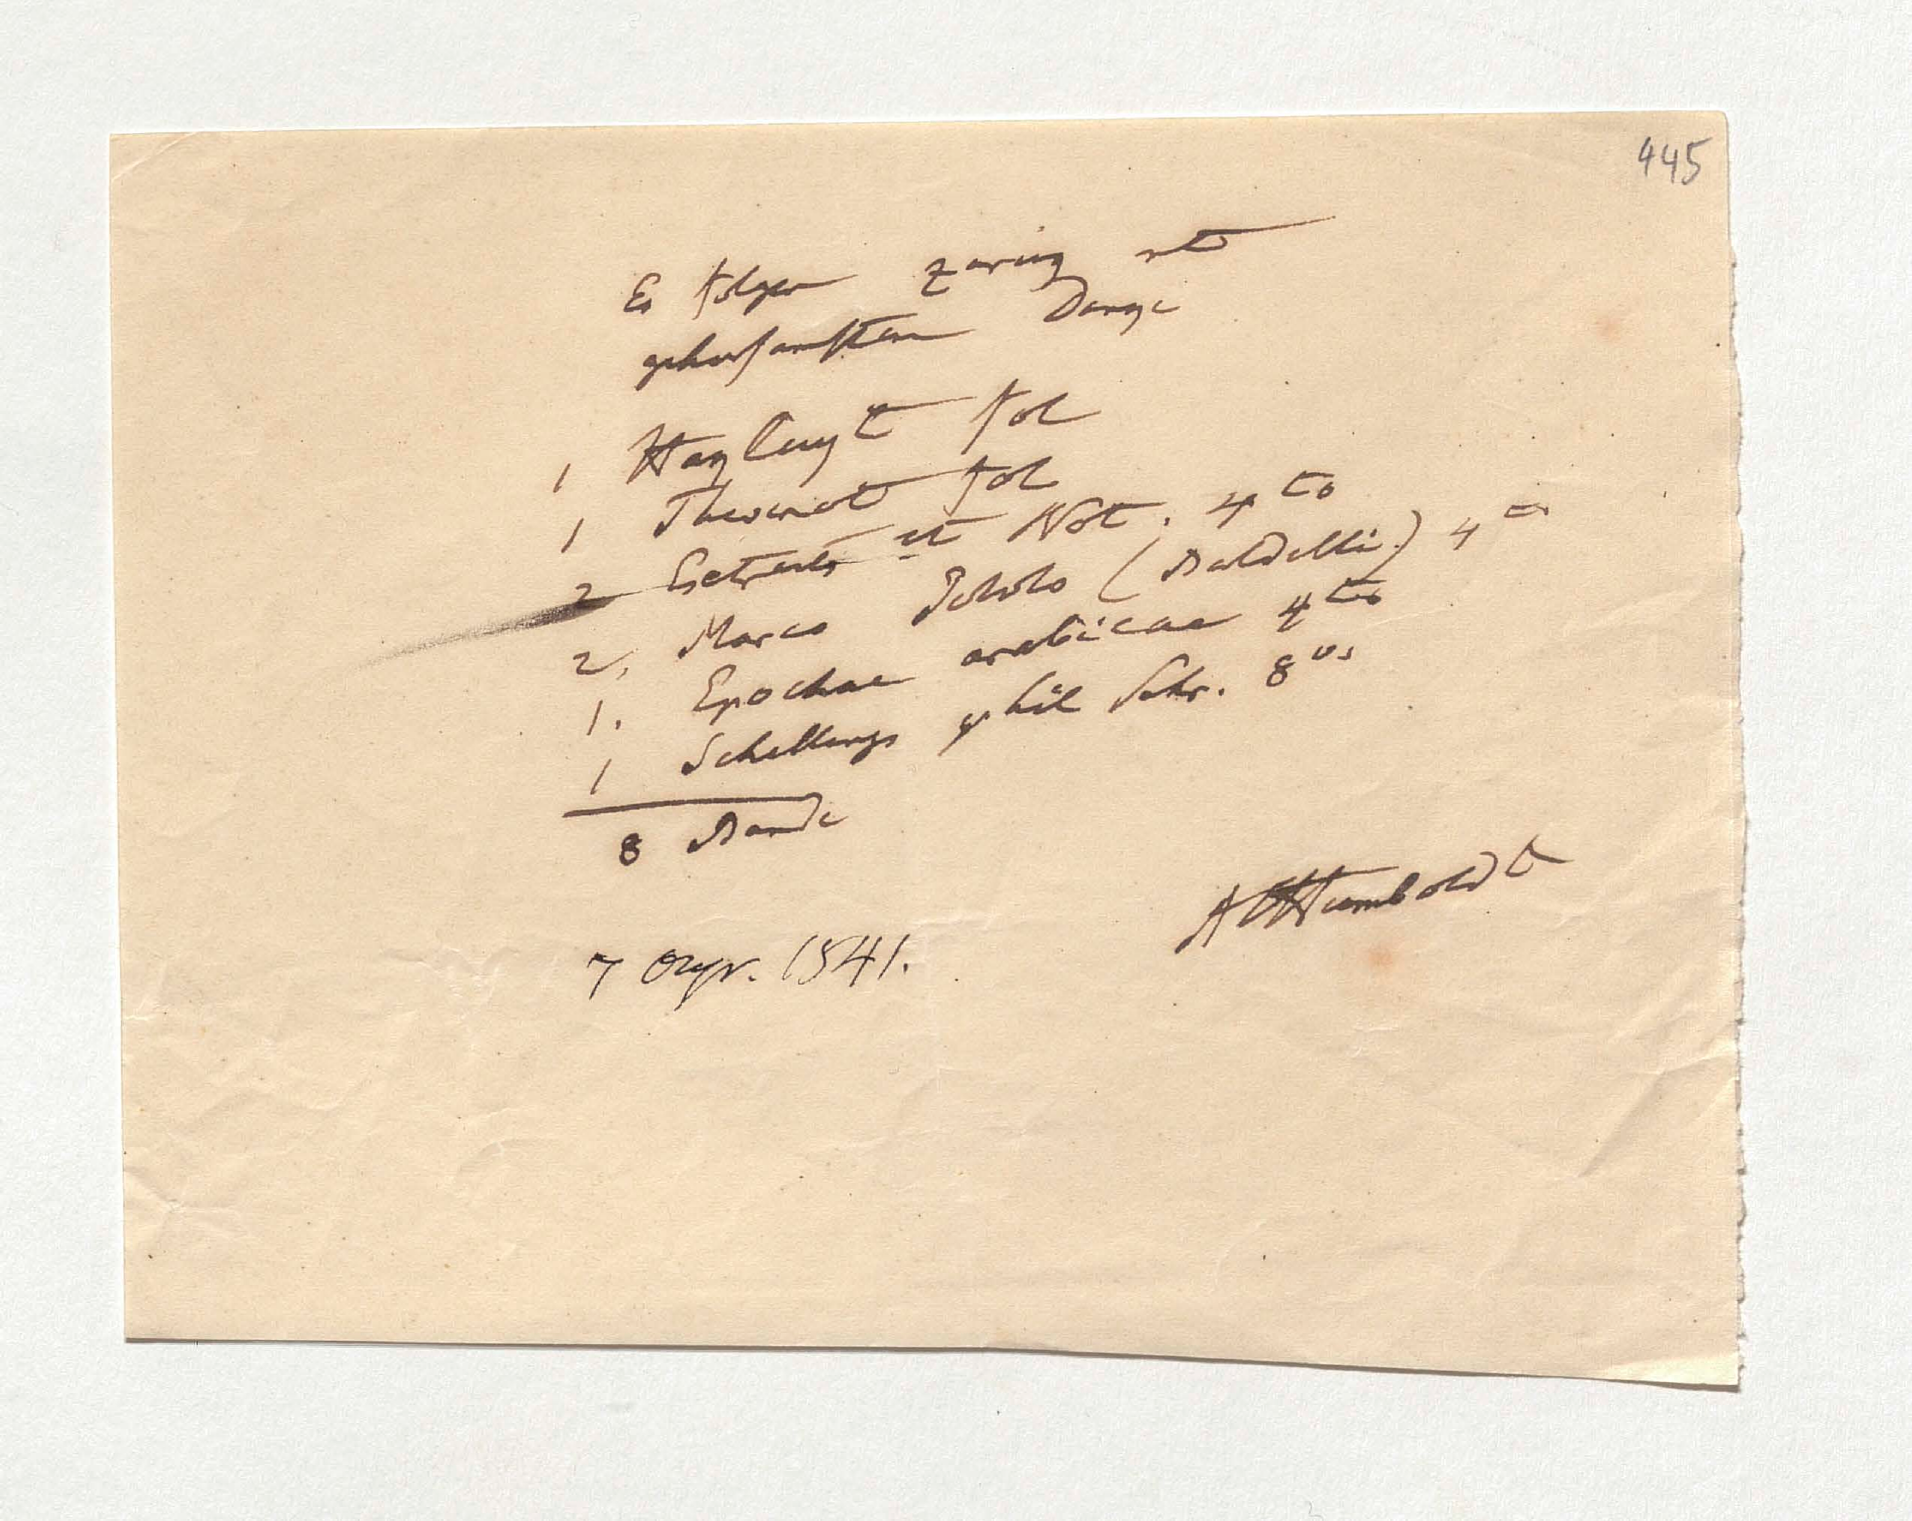 445
Es folgen zurück mit
gehorsamsten Danke
1 Hakluyt fol
1 Thevenot fol
2 Extraits et Not. 4to
2. Marco Pololo (Baldelli) 4to
1. Epochae arabicae 4to
1 Schellings phil Schr. 8vo
8 Bände
AvHumboldt
7 Apr. 1841.